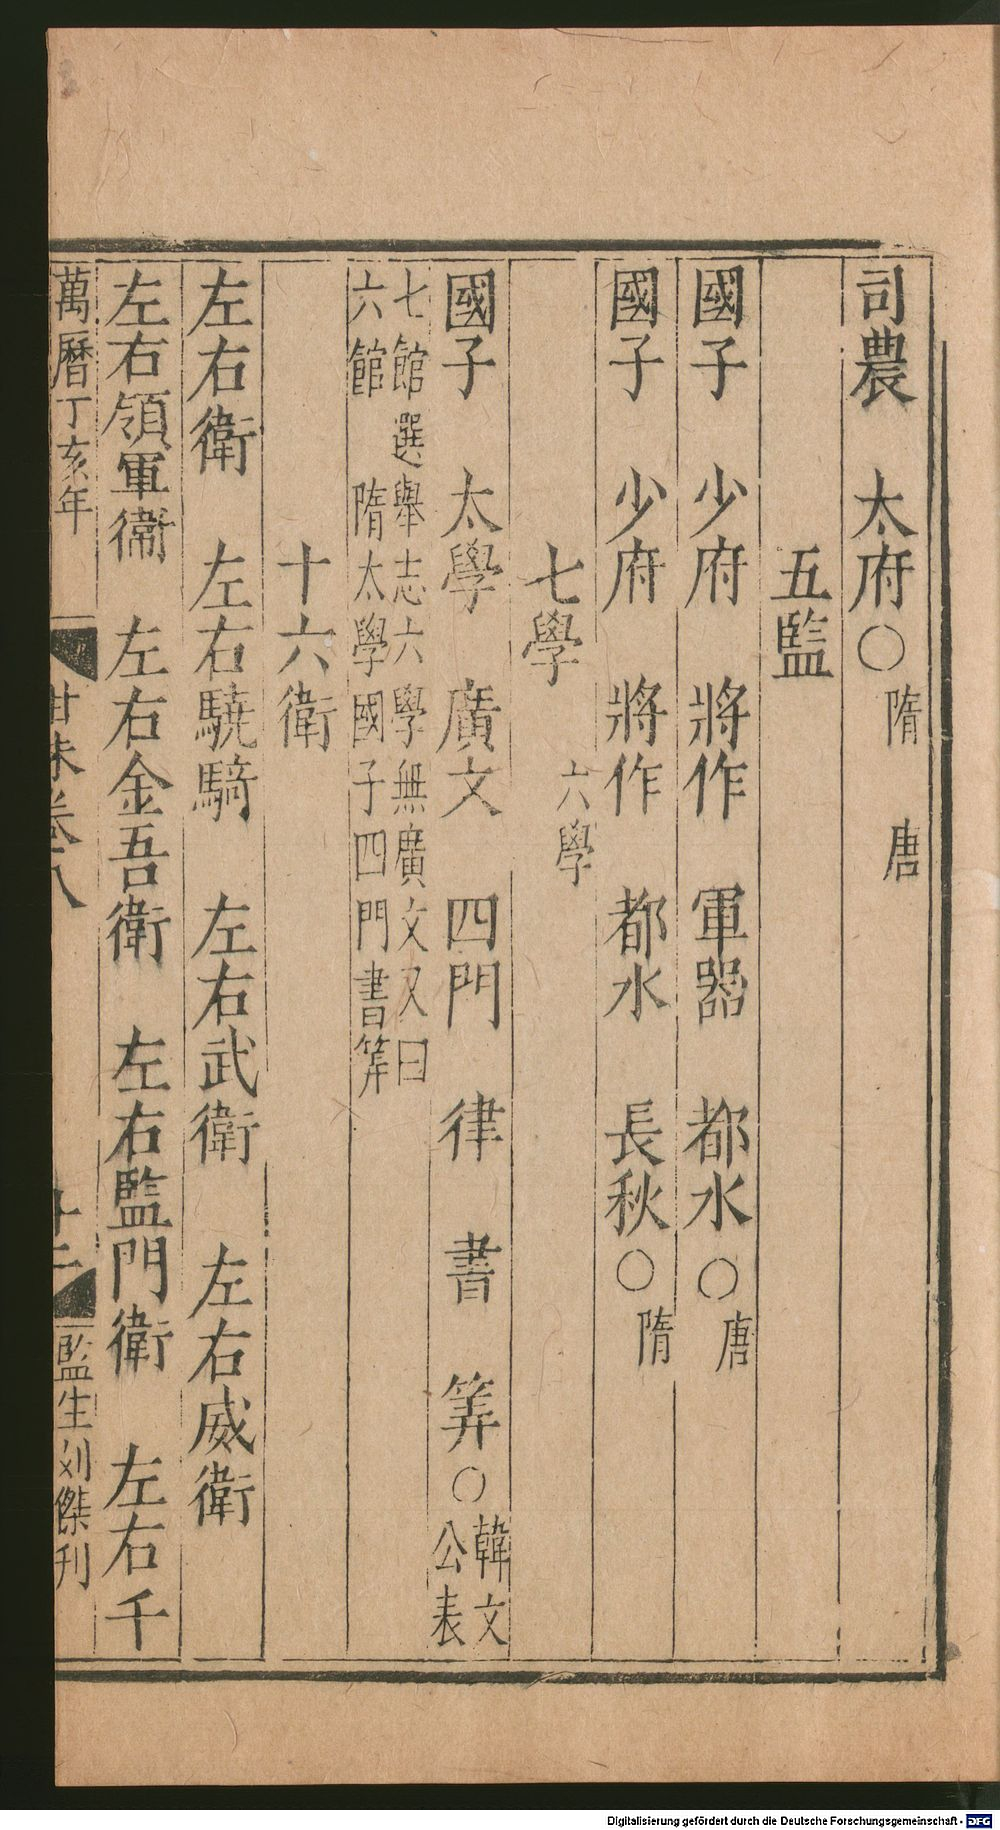 司農　太府○隋　唐
五監
國子　少府　將作　軍器　都水○唐
國子　少府　將作　都水　長秋○隋
七學　六學
國子　太學　廣文　四門　律　書　筭○韓文公表
七館選舉志六學無廣文又曰
六館　隋太學國子四門書筭
十六衛
左右衛　左右驍騎　左右武衛　左右威衛
左右領軍衛　左右金吾衛　左右監門衛　左右千
萬曆丁亥年　卷八　監生刘傑刊
Digitalisierung gefördert durch die Deutsche Forschungsgemeinschaft - DFG